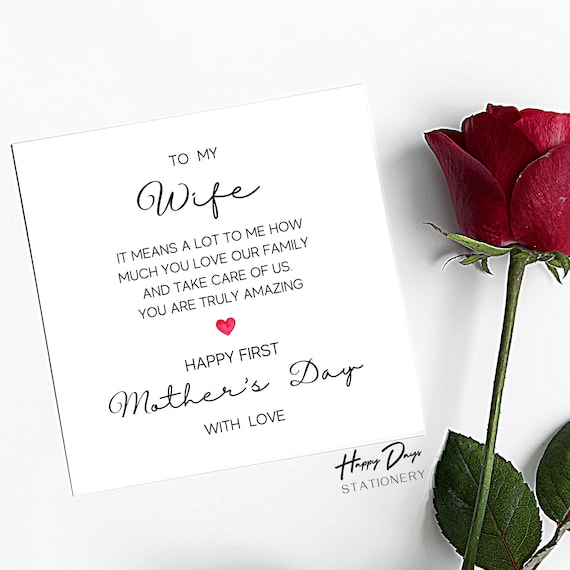 TO MY
Wife
IT MEANS A LOT TO ME HOW
MUCH YOU LOVE OUR FAMILY
AND TAKE CARE OF US.
YOU ARE TRULY AMAZING
HAPPY FIRST
Mother's Day
WITH LOVE
Happy Days
STATIONERY